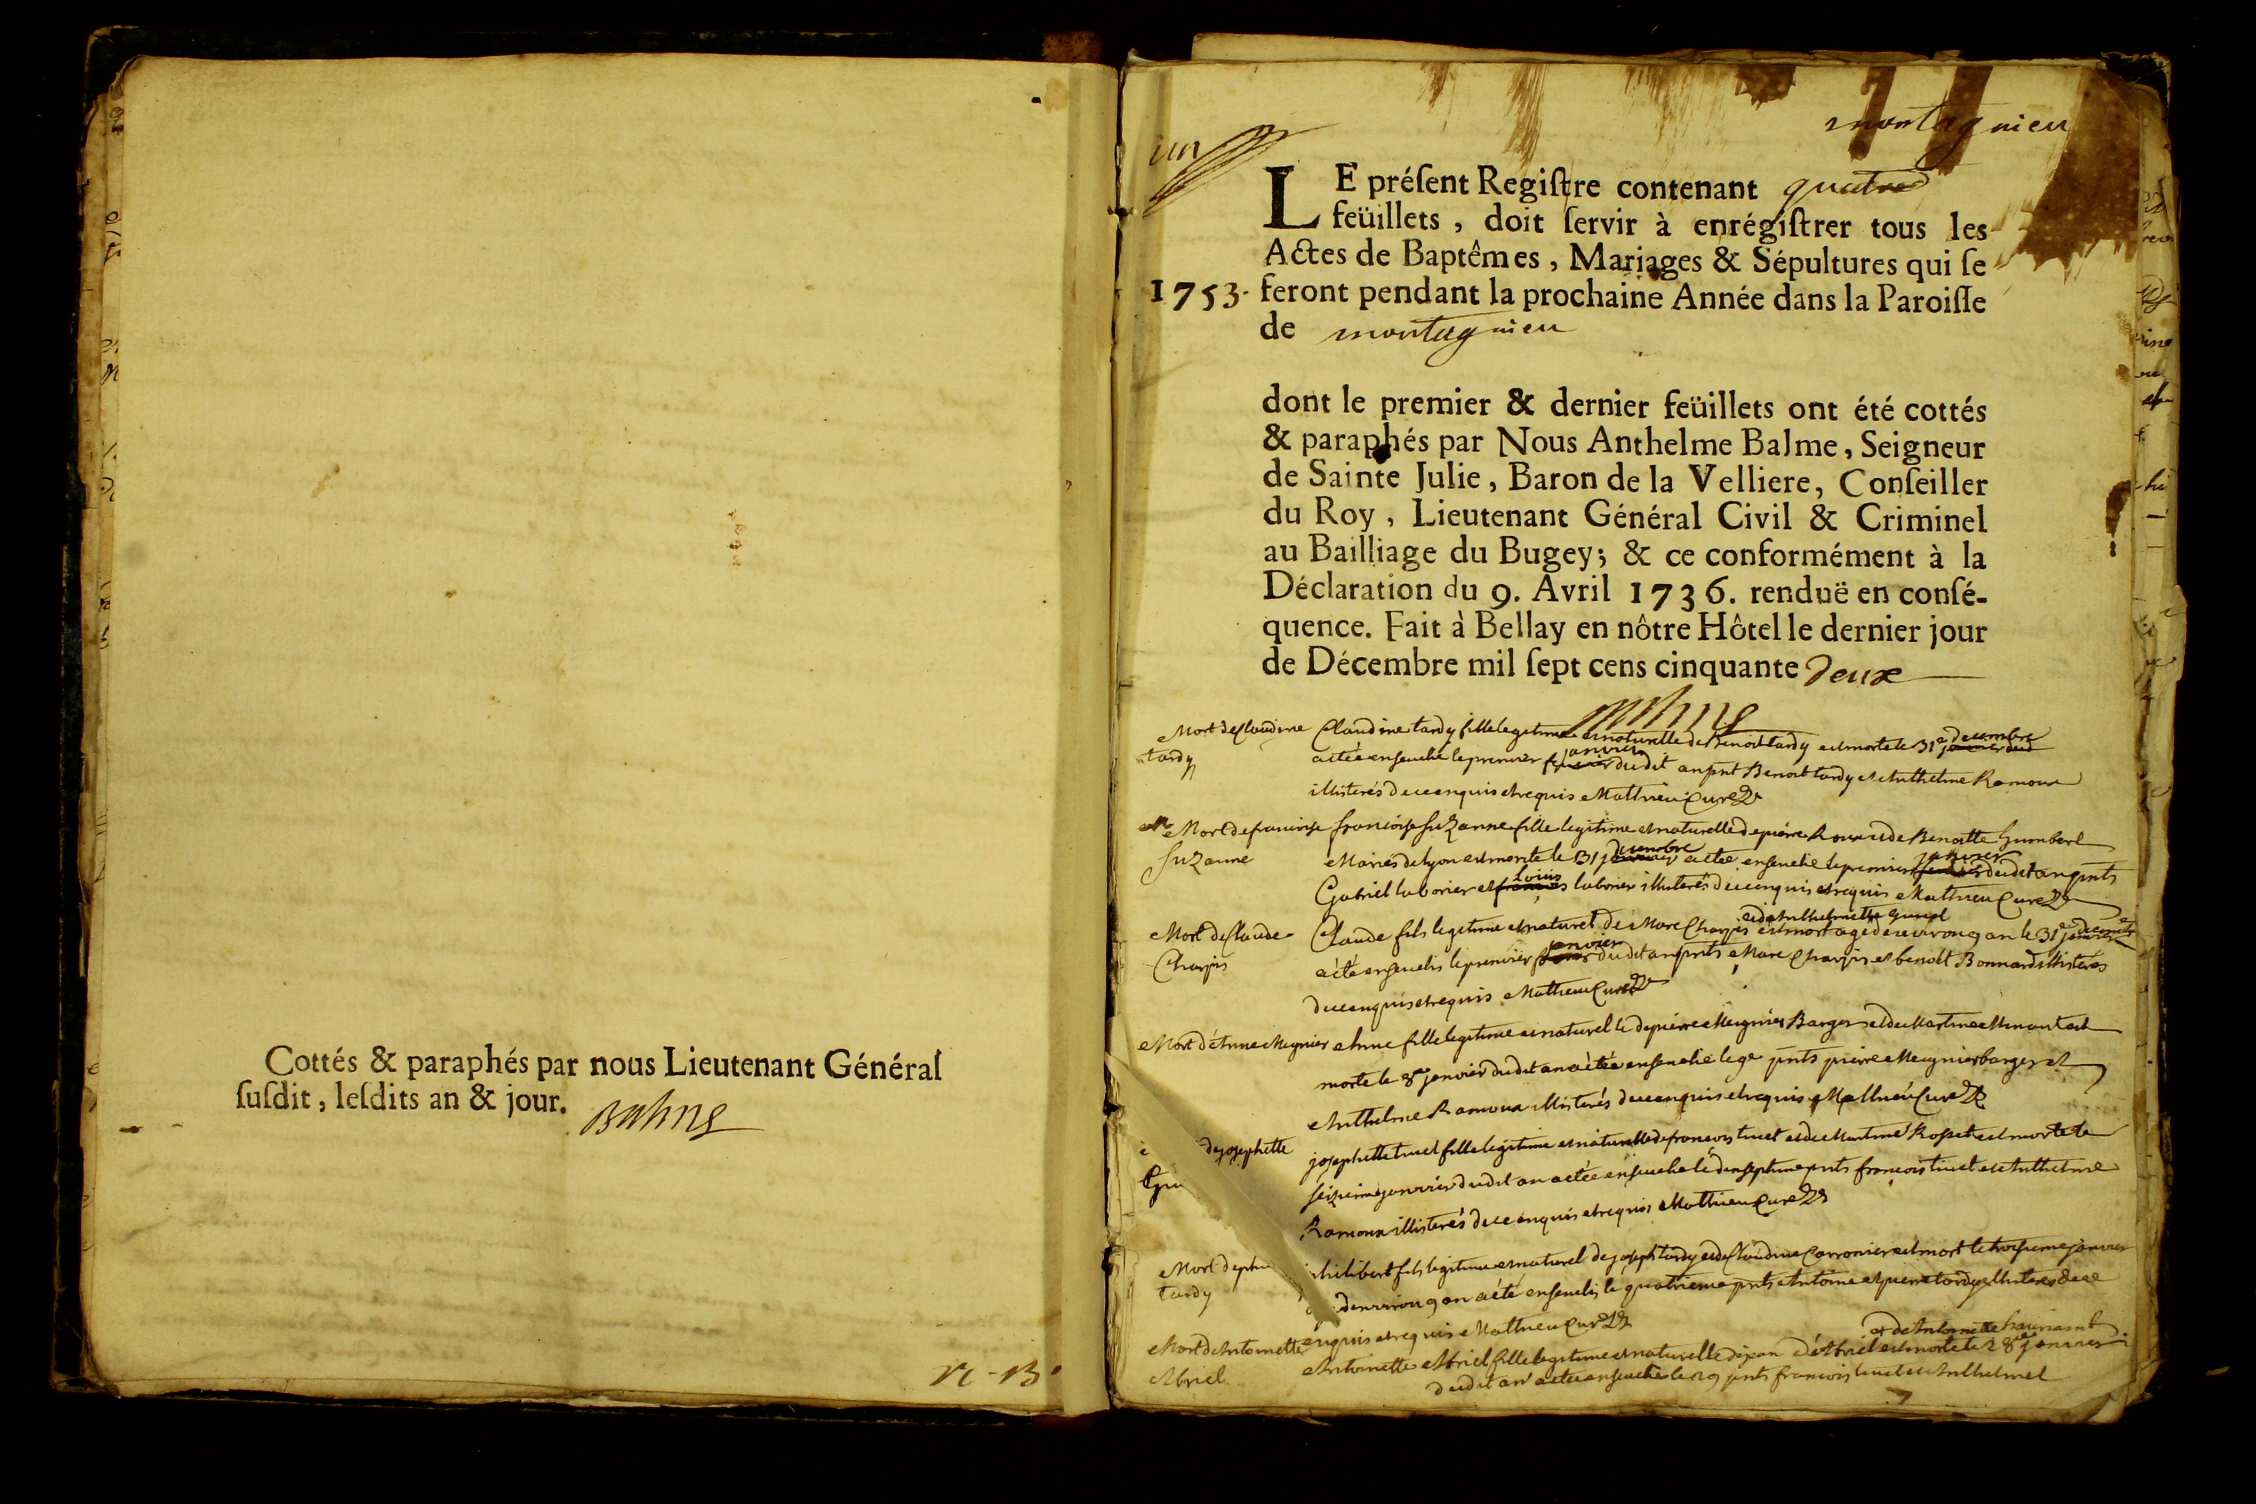 Cottés & paraphés par nous Lieutenant Général
suſdit, leſdits an & jour.
Balme
montagnieu
un
LE préſent Regiſtre contenant quatre
feüillets, doit ſervir à enrégiſtrer tous les
Actes de Baptêmes, Mariages & Sépultures qui ſe
1753. feront pendant la prochaine Année dans la Paroiſſe
de montagnieu
dont le premier & dernier feüillets ont été cottés
& paraphés par Nous Anthelme Balme, Seigneur
de Sainte Julie, Baron de la Velliere, Conſeiller
du Roy, Lieutenant Général Civil & Criminel
au Bailliage du Bugey; & ce conformément à la
Déclaration du 9. Avril 1736. renduë en conſé-
quence. Fait à Bellay en nôtre Hôtel le dernier jour
de Décembre mil ſept cens cinquante deux
Balme
Mort de Claudine
tardy
Claudine tardy fille legitime et naturelle de Benoit tardy est morte le 31e decembre
a etée ensevelie le premier janvier dudit an pnt Benoit tardy et Anthelme Ramoux
illiterés de ce enquis et requis Mathieu Curé
Mort de francoise
Suzanne
francoise Suzanne fille legitime et naturelle de pierre Roux et de Benoitte humbert
Mariés de lyon est morte le 31 decembre a etée ensevelie le premier janvier dudit an pnts
Gabriel laborier et louis laborier illiterés de ce enquis et requis Mathieu Curé
Mort de Claude
Charpis
et de Anthelmette
Claude fils legitime et naturel de Marc Charpis est mort agé denviron 9 an le 31e decembre
a été ensevelis le premier janvier dudit an pnts Marc Charpis et benoit Bonnard illiteres
de ce enquis et requis Mathieu Curé
Mort d'Anne Meynier
Anne fille legitime et naturelle de pierre Meynier Barger et de Martine est
morte le 8e janvier dudit an a étée ensevelie le 9e pnts pierre Meynier barger et
Anthelme Ramoux illiterés de ce enquis et requis Mathieu Curé
de josephette
josephette tinet fille legitime et naturelle de francois tinet et de Martine Rosset est morte le
seizieme janvier dudit an a etée ensevelie le dixseptieme pnts francois tinet et Anthelme
Ramoux illiterés de ce enquis et requis Mathieu Curé
Mort de phi
tardy
philibert fils legitime et naturel de joseph tardy et de Claudine Carronier est mort le troisieme janvier
denviron 9 an a été ensevelis le quatrieme pnts Antoine et pierre tardy illiteres de ce
enquis et requis Mathieu Curé
Mort de Antoinette
Abriel
et de Antoinette
Antoinette Abriel fille legitime et naturelle de jean Abriel est morte le 28e janvier
dudit an a etée ensevelie le 29 pnts francois tinet et Anthelme